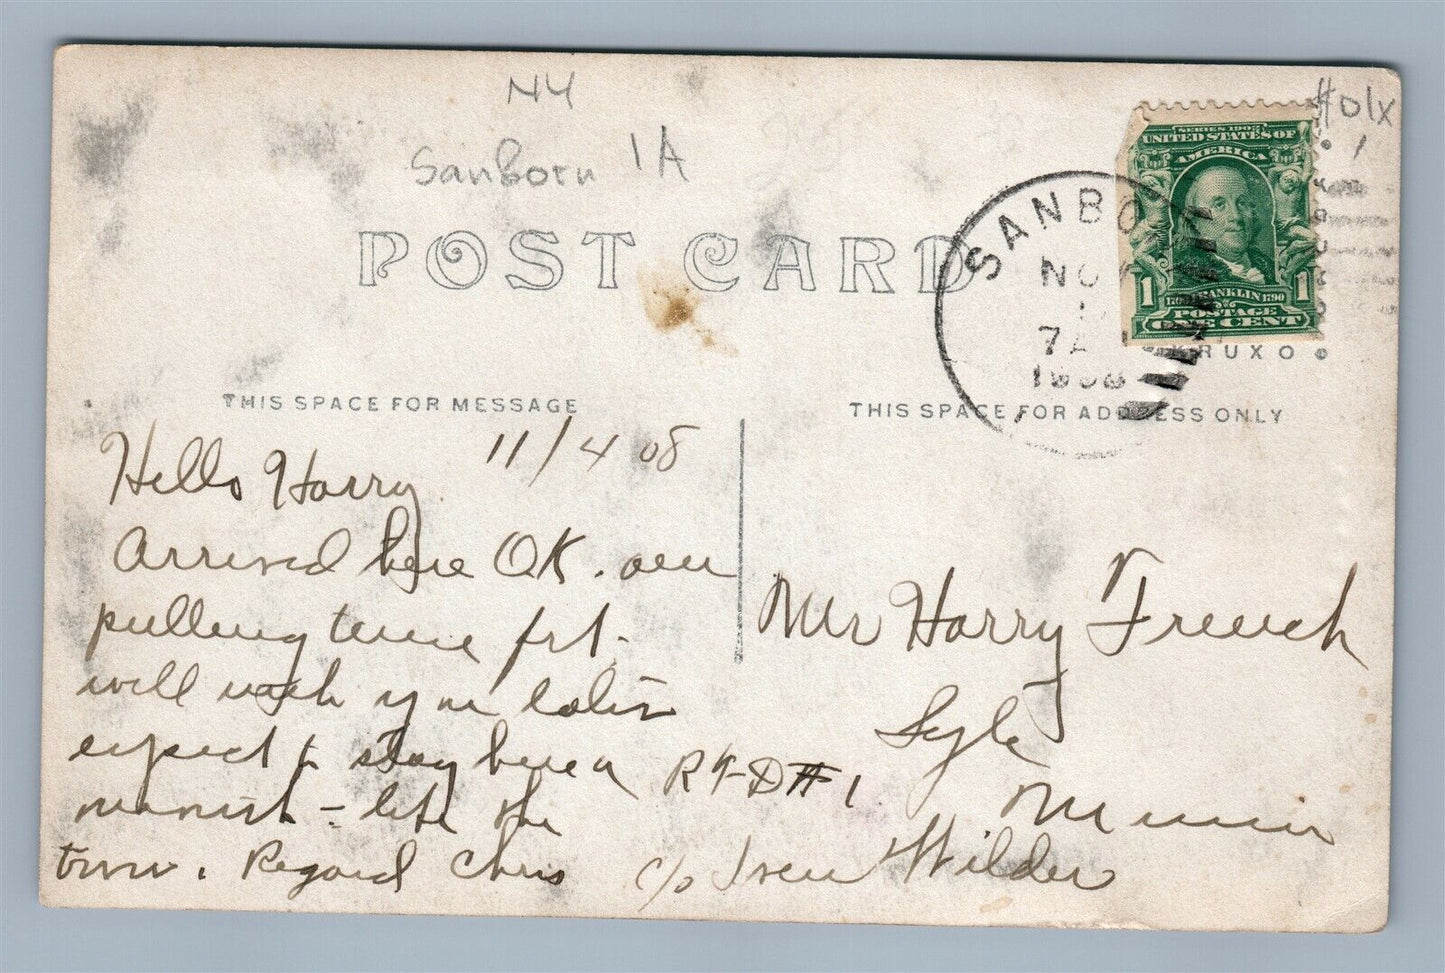 NY
Sanborn IA
#01x
POST CARD
SANBO
NO
7A
1908
SERIES 1902
UNITED STATES OF
AMERICA
1 FRANKLIN 1790 1
POSTAGE
ONE CENT
KRUXO
THIS SPACE FOR MESSAGE
THIS SPACE FOR ADDRESS ONLY
11/4 08
Hello Harry
Arrived here OK. am
pulling frt.
will you later
expect to stay here a
month - like the
town. Regard Chris
Mr Harry French
Lyle
Minn
RFD #1
c/o Iven Wilder